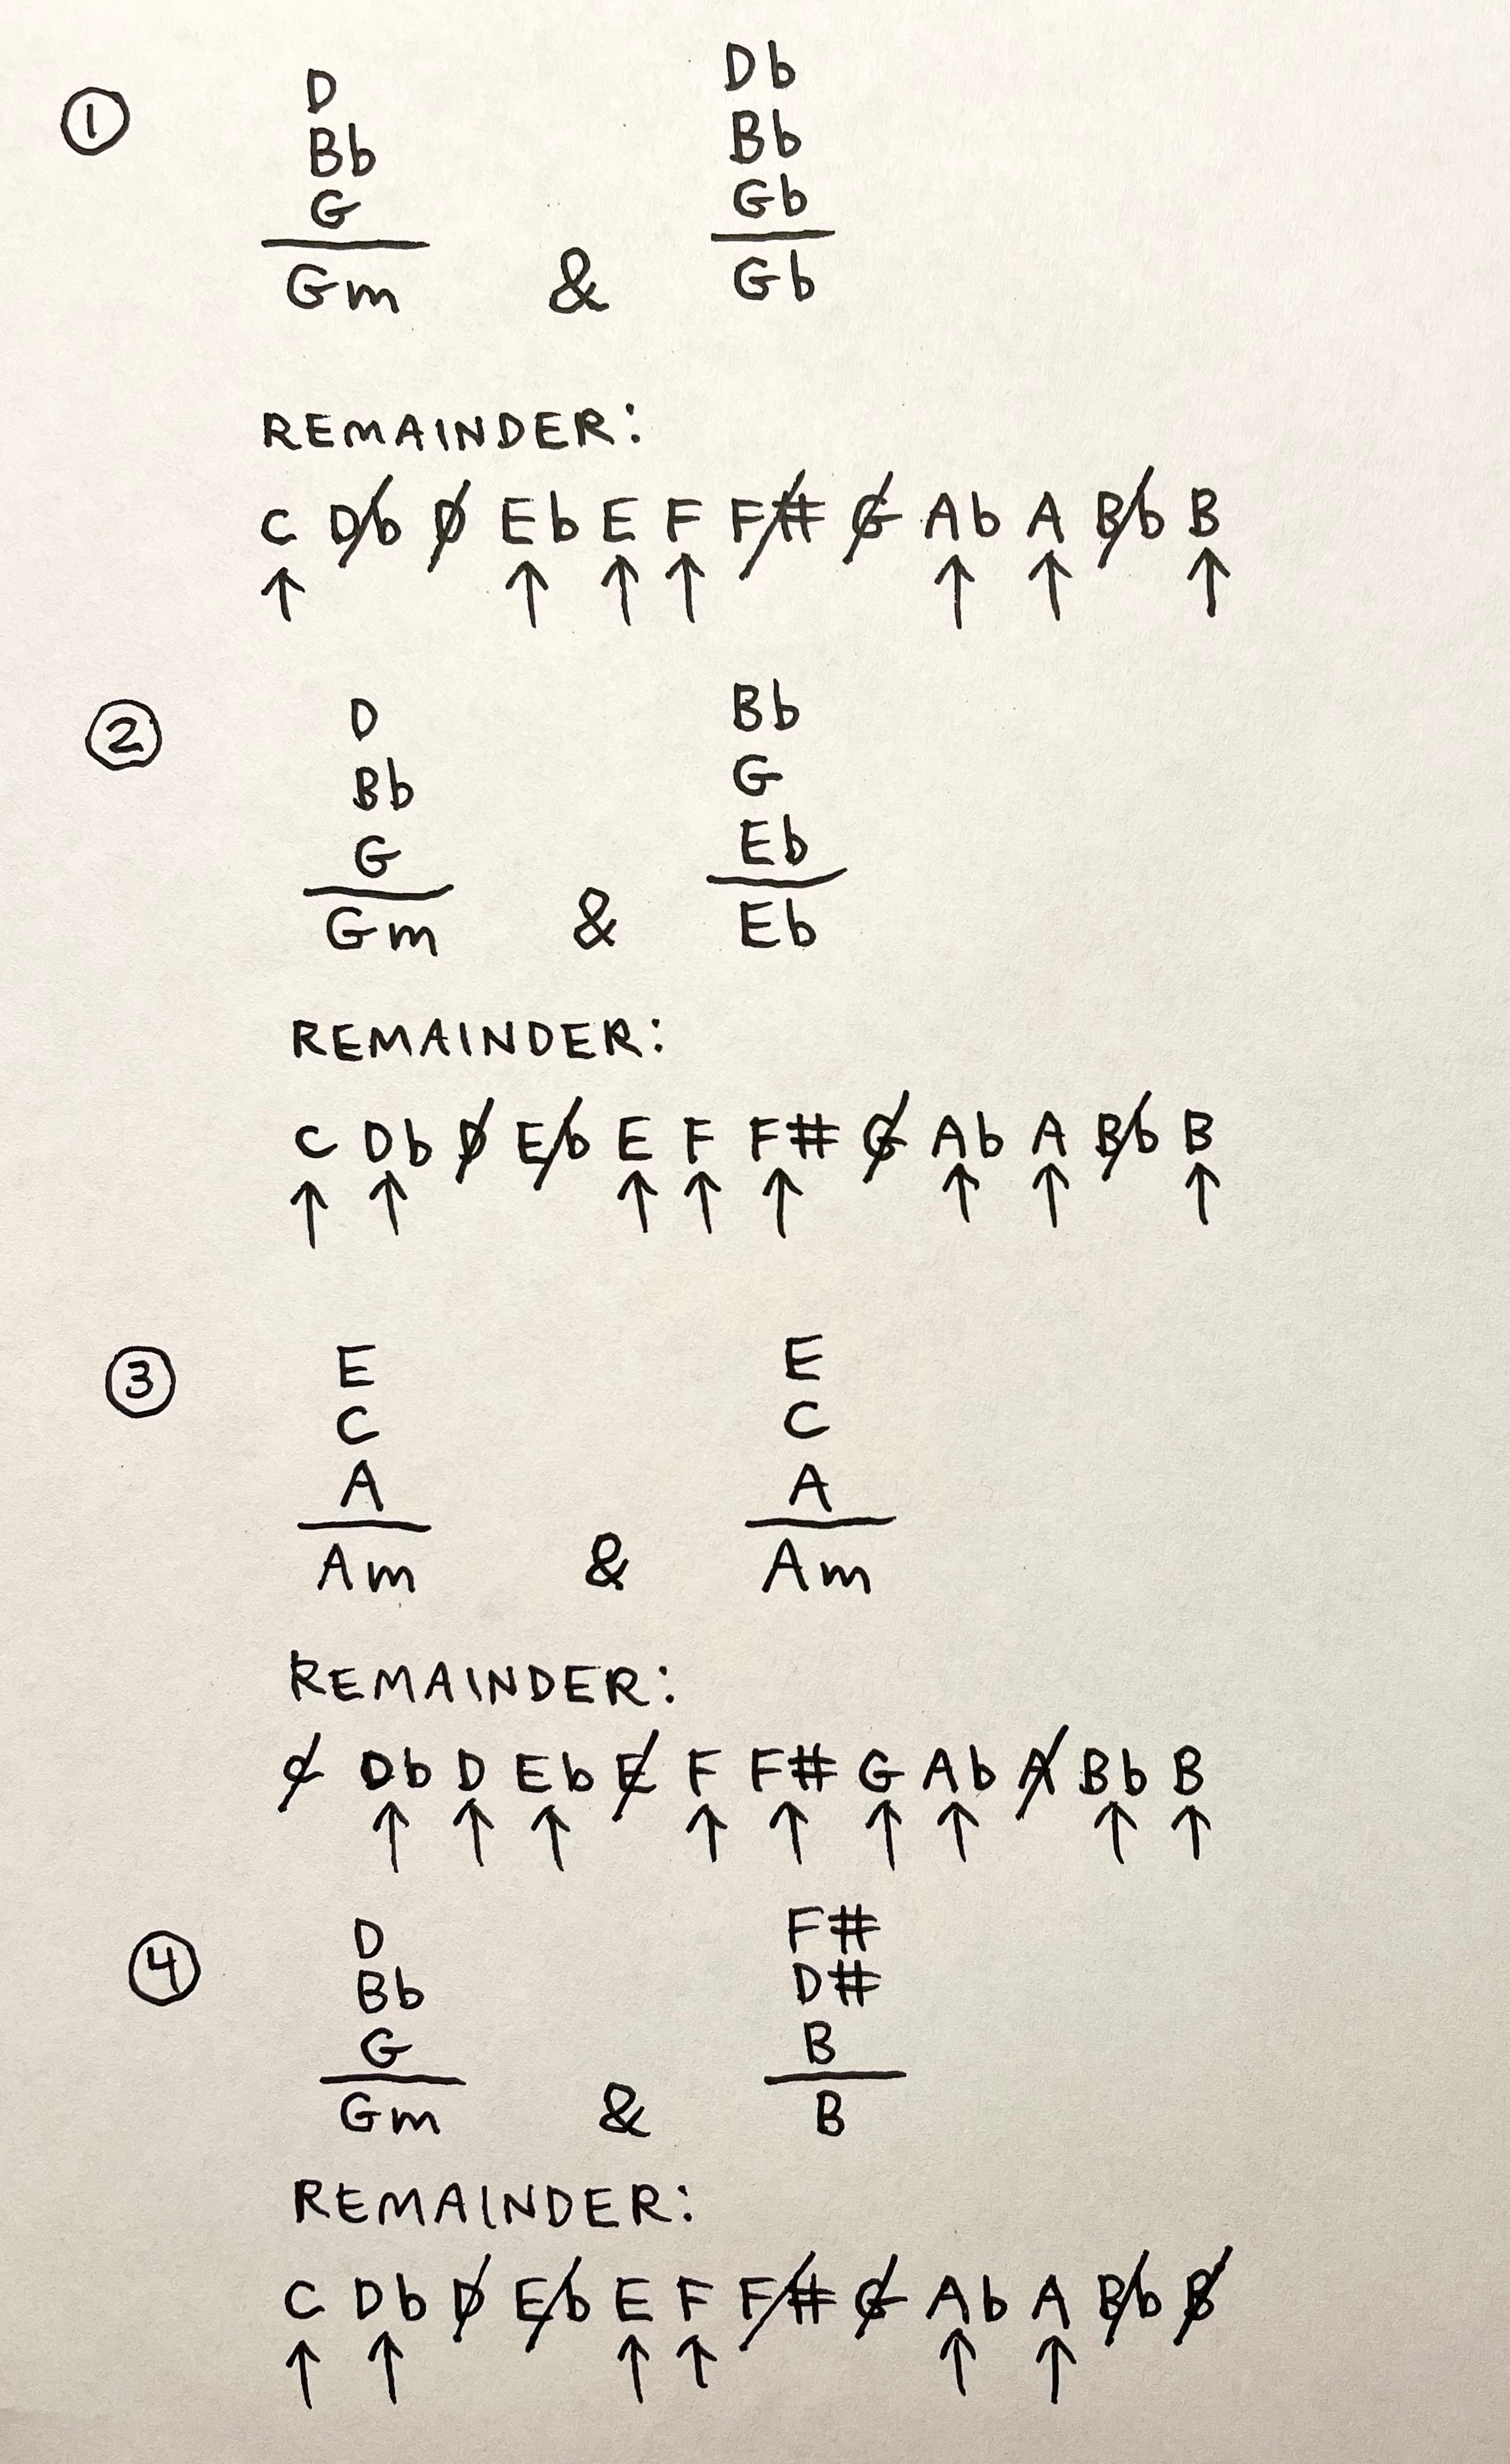 ①
D
Bb
G
Gm
&
Db
Bb
Gb
Gb
REMAINDER:
C Db D Eb E F F# G Ab A Bb B
②
D
Bb
G
Gm
&
Bb
G
Eb
Eb
REMAINDER:
C Db D Eb E F F# G Ab A Bb B
③
E
C
A
Am
&
E
C
A
Am
REMAINDER:
C Db D Eb E F F# G Ab A Bb B
④
D
Bb
G
Gm
&
F#
D#
B
B
REMAINDER:
C Db D Eb E F F# G Ab A Bb B